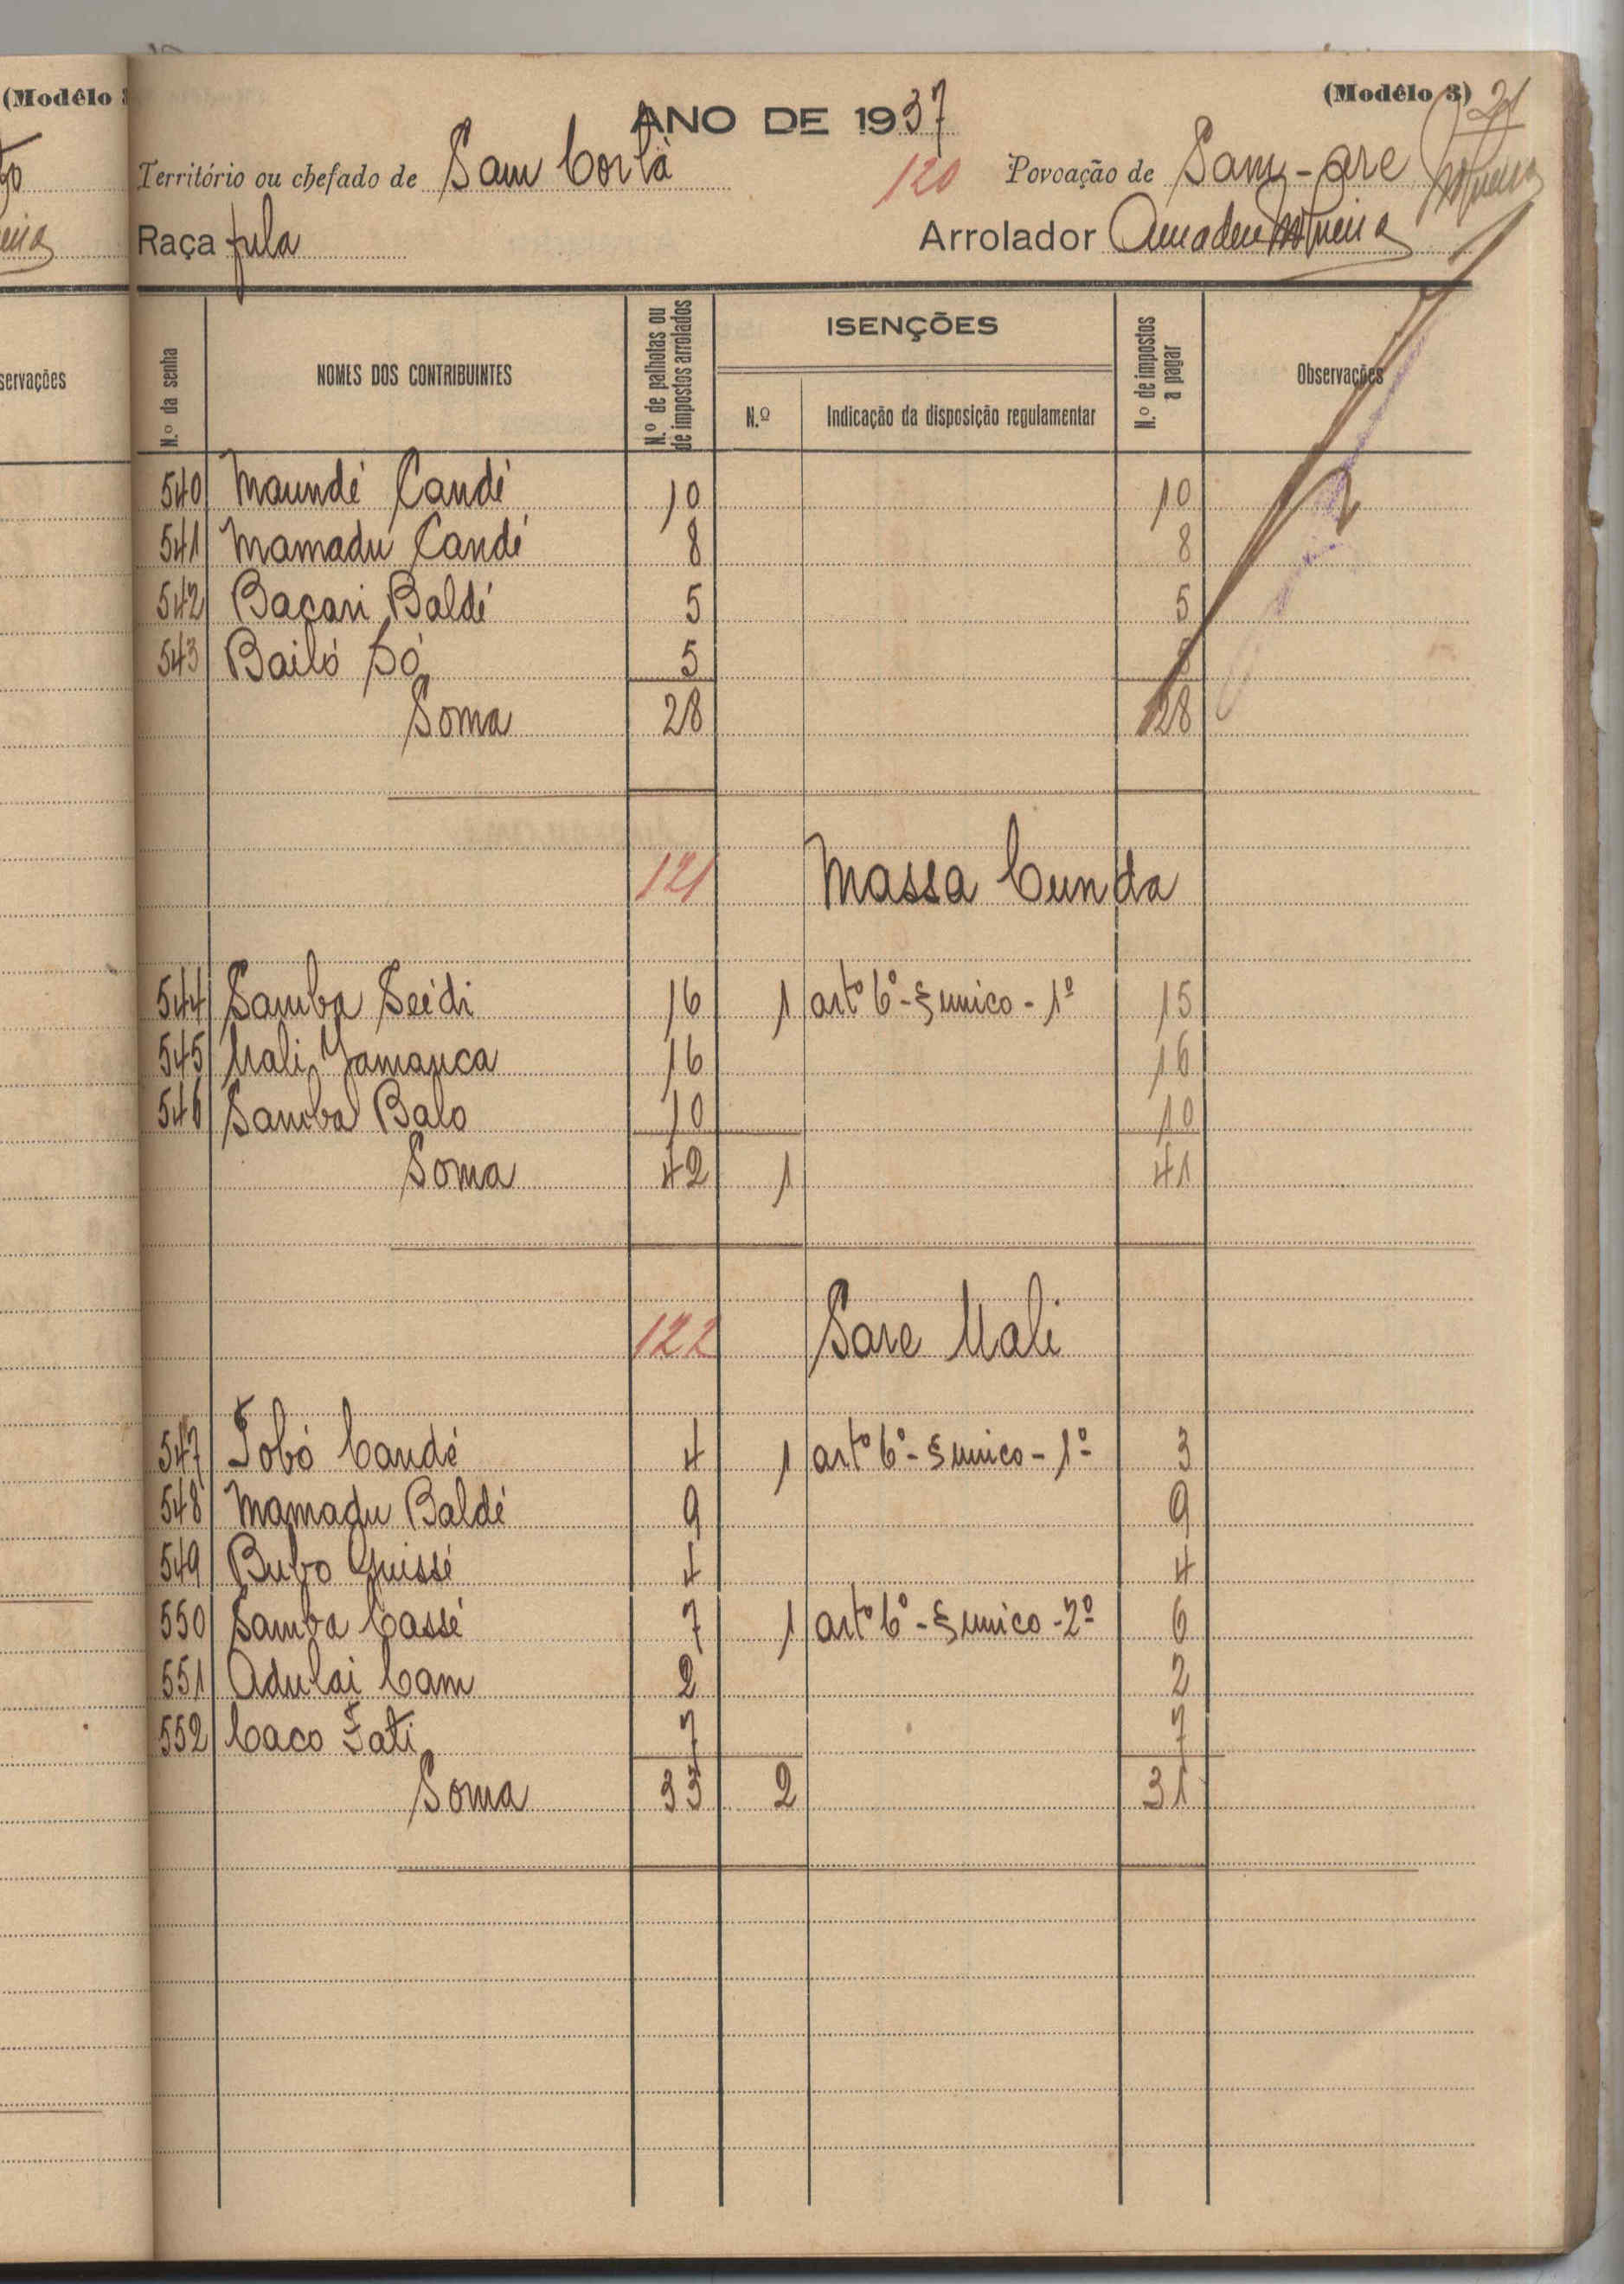 (Modêlo
(Modêlo 3)
21
ANO DE 1937
Território ou chefado de Sam Corlá
120
Povoação de Sam-gre
Raça fula
Arrolador Amadeu
servações
N.º da senha
NOMES DOS CONTRIBUINTES
N.º de palhotas ou de impostos arrolados
ISENÇÕES
N.º
Indicação da disposição regulamentar
N.º de impostos a pagar
Observações
540 Maundé Candé 10 10
541 Mamadu Candé 8 8
542 Bacari Baldé 5 5
543 Bailó Só 5 5
Soma 28 28
121 Massa Cunda
544 Samba Seidi 16 1 artº 6º - § unico - 1º 15
545 Uali Jamanca 16 16
546 Samba Balo 10 10
Soma 42 1 41
122 Sare Uali
547 Tobó Candé 4 1 artº 6º - § unico - 1º 3
548 Mamadu Baldé 9 9
549 Bubo Guissé 4 4
550 Samba Cassé 7 1 artº 6º - § unico - 2º 6
551 Adulai Cam 2 2
552 Caco Fati 7 7
Soma 33 2 31